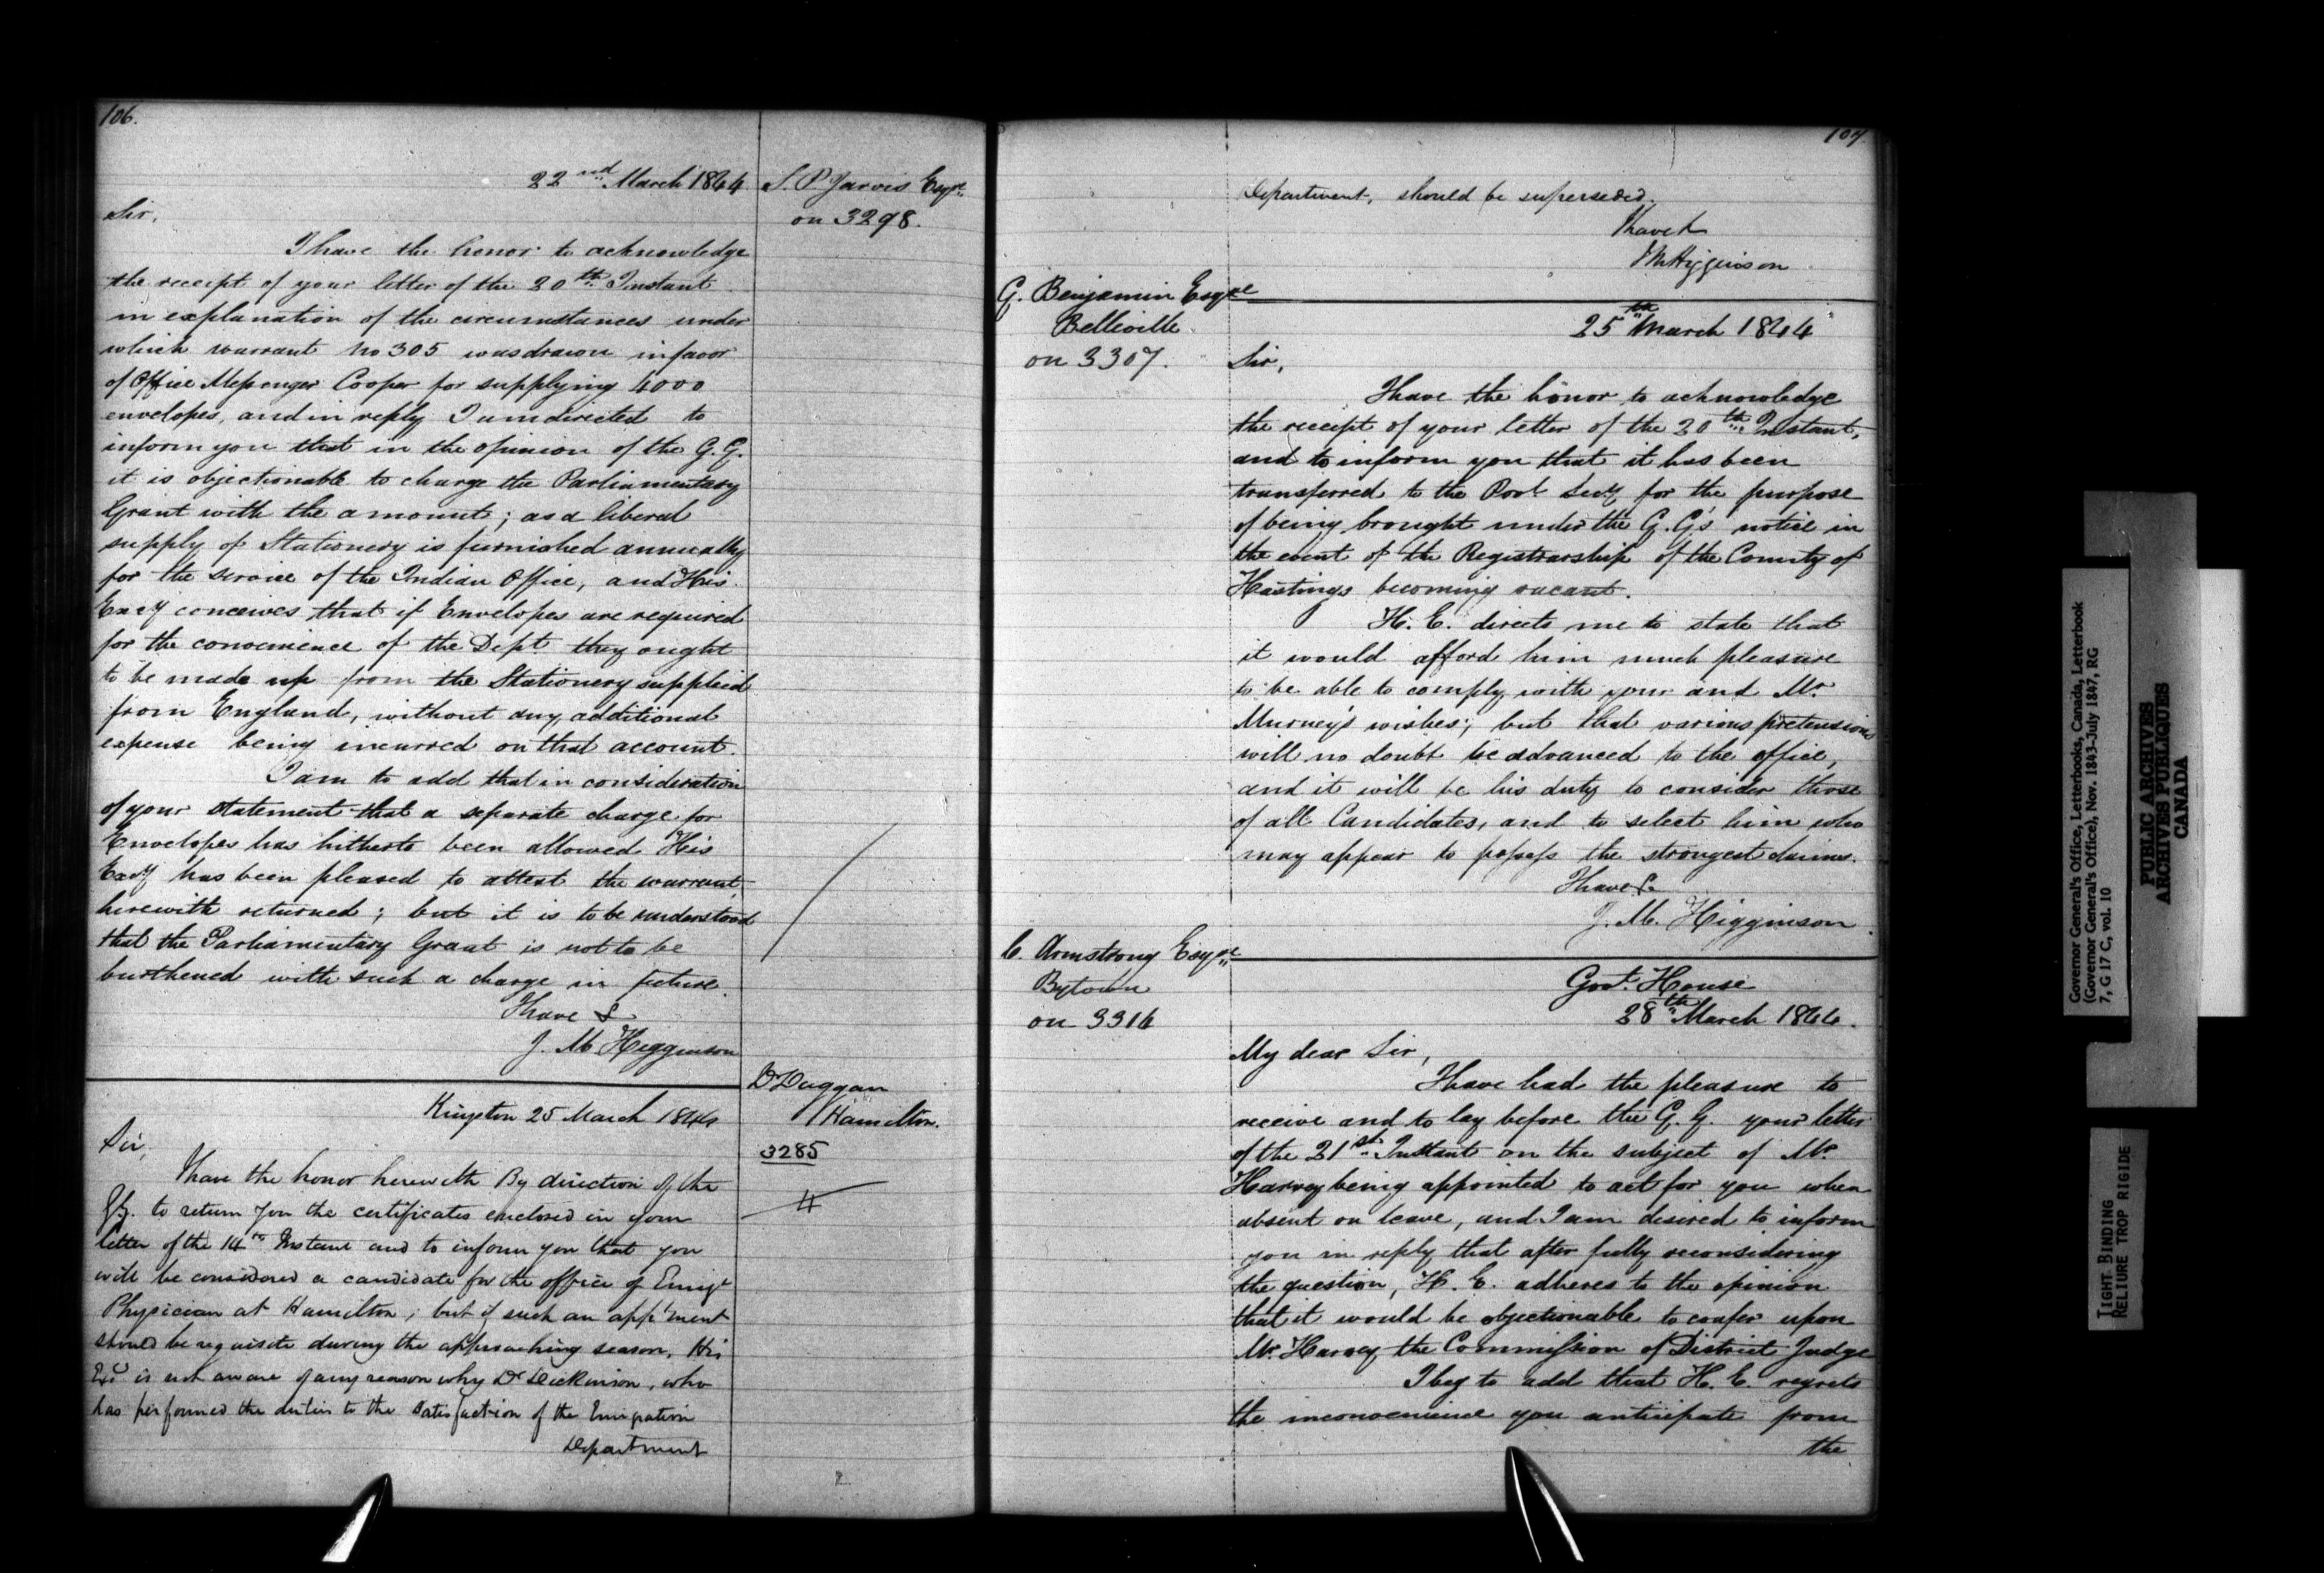 106.
22nd March 1844
S. P. Jarvis Esqre
on 3298.
Sir,
I have the honor to acknowledge
the receipt of your letter of the 20th Instant
in explanation of the circumstances under
which warrant No 305 was drawn in favor
of Office Messenger Cooper for supplying 4000
envelopes, and in reply I am directed to
inform you that in the opinion of the G. G.
it is objectionable to charge the Parliamentary
Grant with the amount; as a liberal
supply of Stationery is furnished annually
for the service of the Indian Office, and His
Excy conceives that if Envelopes are required
for the convenience of the Dept they ought
to be made up from the Stationery supplied
from England, without any additional
expense being incurred on that account.
I am to add that in consideration
of your statement that a separate charge for
Envelopes has hitherto been allowed His
Excy has been pleased to attest the warrant
herewith returned; but it is to be understood
that the Parliamentary Grant is not to be
burthened with such a charge in future.
I have &
J. M Higginson
Dr Duggan
Hamilton.
3285
Kingston 25 March 1844
Sir,
I have the honor herewith By direction of the
G.G. to return you the certificates enclosed in your
letter of the 14th Instant and to inform you that you
will be considered a candidate for the office of Emigt
Physician at Hamilton; but if such an app'ment
should be requisite during the approaching season, His
Exy is not aware of any reason why Dr Dickinson, who
has performed the duties to the satisfaction of the Emigration
Department
107.
Department, should be superseded.
I have &
J M Higginson
G. Benjamin Esqre
Belleville
on 3307.
25th March 1844
Sir,
I have the honor to acknowledge
the receipt of your letter of the 20th Instant,
and to inform you that it has been
transferred to the Provl Secy for the purpose
of being brought under the G. G's notice in
the event of the Registrarship of the County of
Hastings becoming vacant.
H. E. directs me to state that
it would afford him much pleasure
to be able to comply with your and Mr
Murney's wishes; but that various pretensions
will no doubt be advanced to the office,
and it will be his duty to consider those
of all Candidates, and to select him who
may appear to possess the strongest claims.
I have &
J. M. Higginson
C. Armstrong Esqre
Bytown
on 3314
Govt House
28th March 1844.
My dear Sir,
I have had the pleasure to
receive and to lay before the G. G. your letter
of the 21st Instant on the subject of Mr
Harvey being appointed to act for you when
absent on leave, and I am desired to inform
you in reply that after fully reconsidering
the question, H. E. adheres to the opinion
that it would be objectionable to confer upon
Mr Harvey the Commission of District Judge
I beg to add that H. E. regrets
the inconvenience you anticipate from
the
Governor General's Office, Letterbooks, Canada, Letterbook
(Governor General's Office), Nov. 1843-July 1847, RG
7, G 17 C, vol. 10
PUBLIC ARCHIVES
ARCHIVES PUBLIQUES
CANADA
TIGHT BINDING
RELIURE TROP RIGIDE